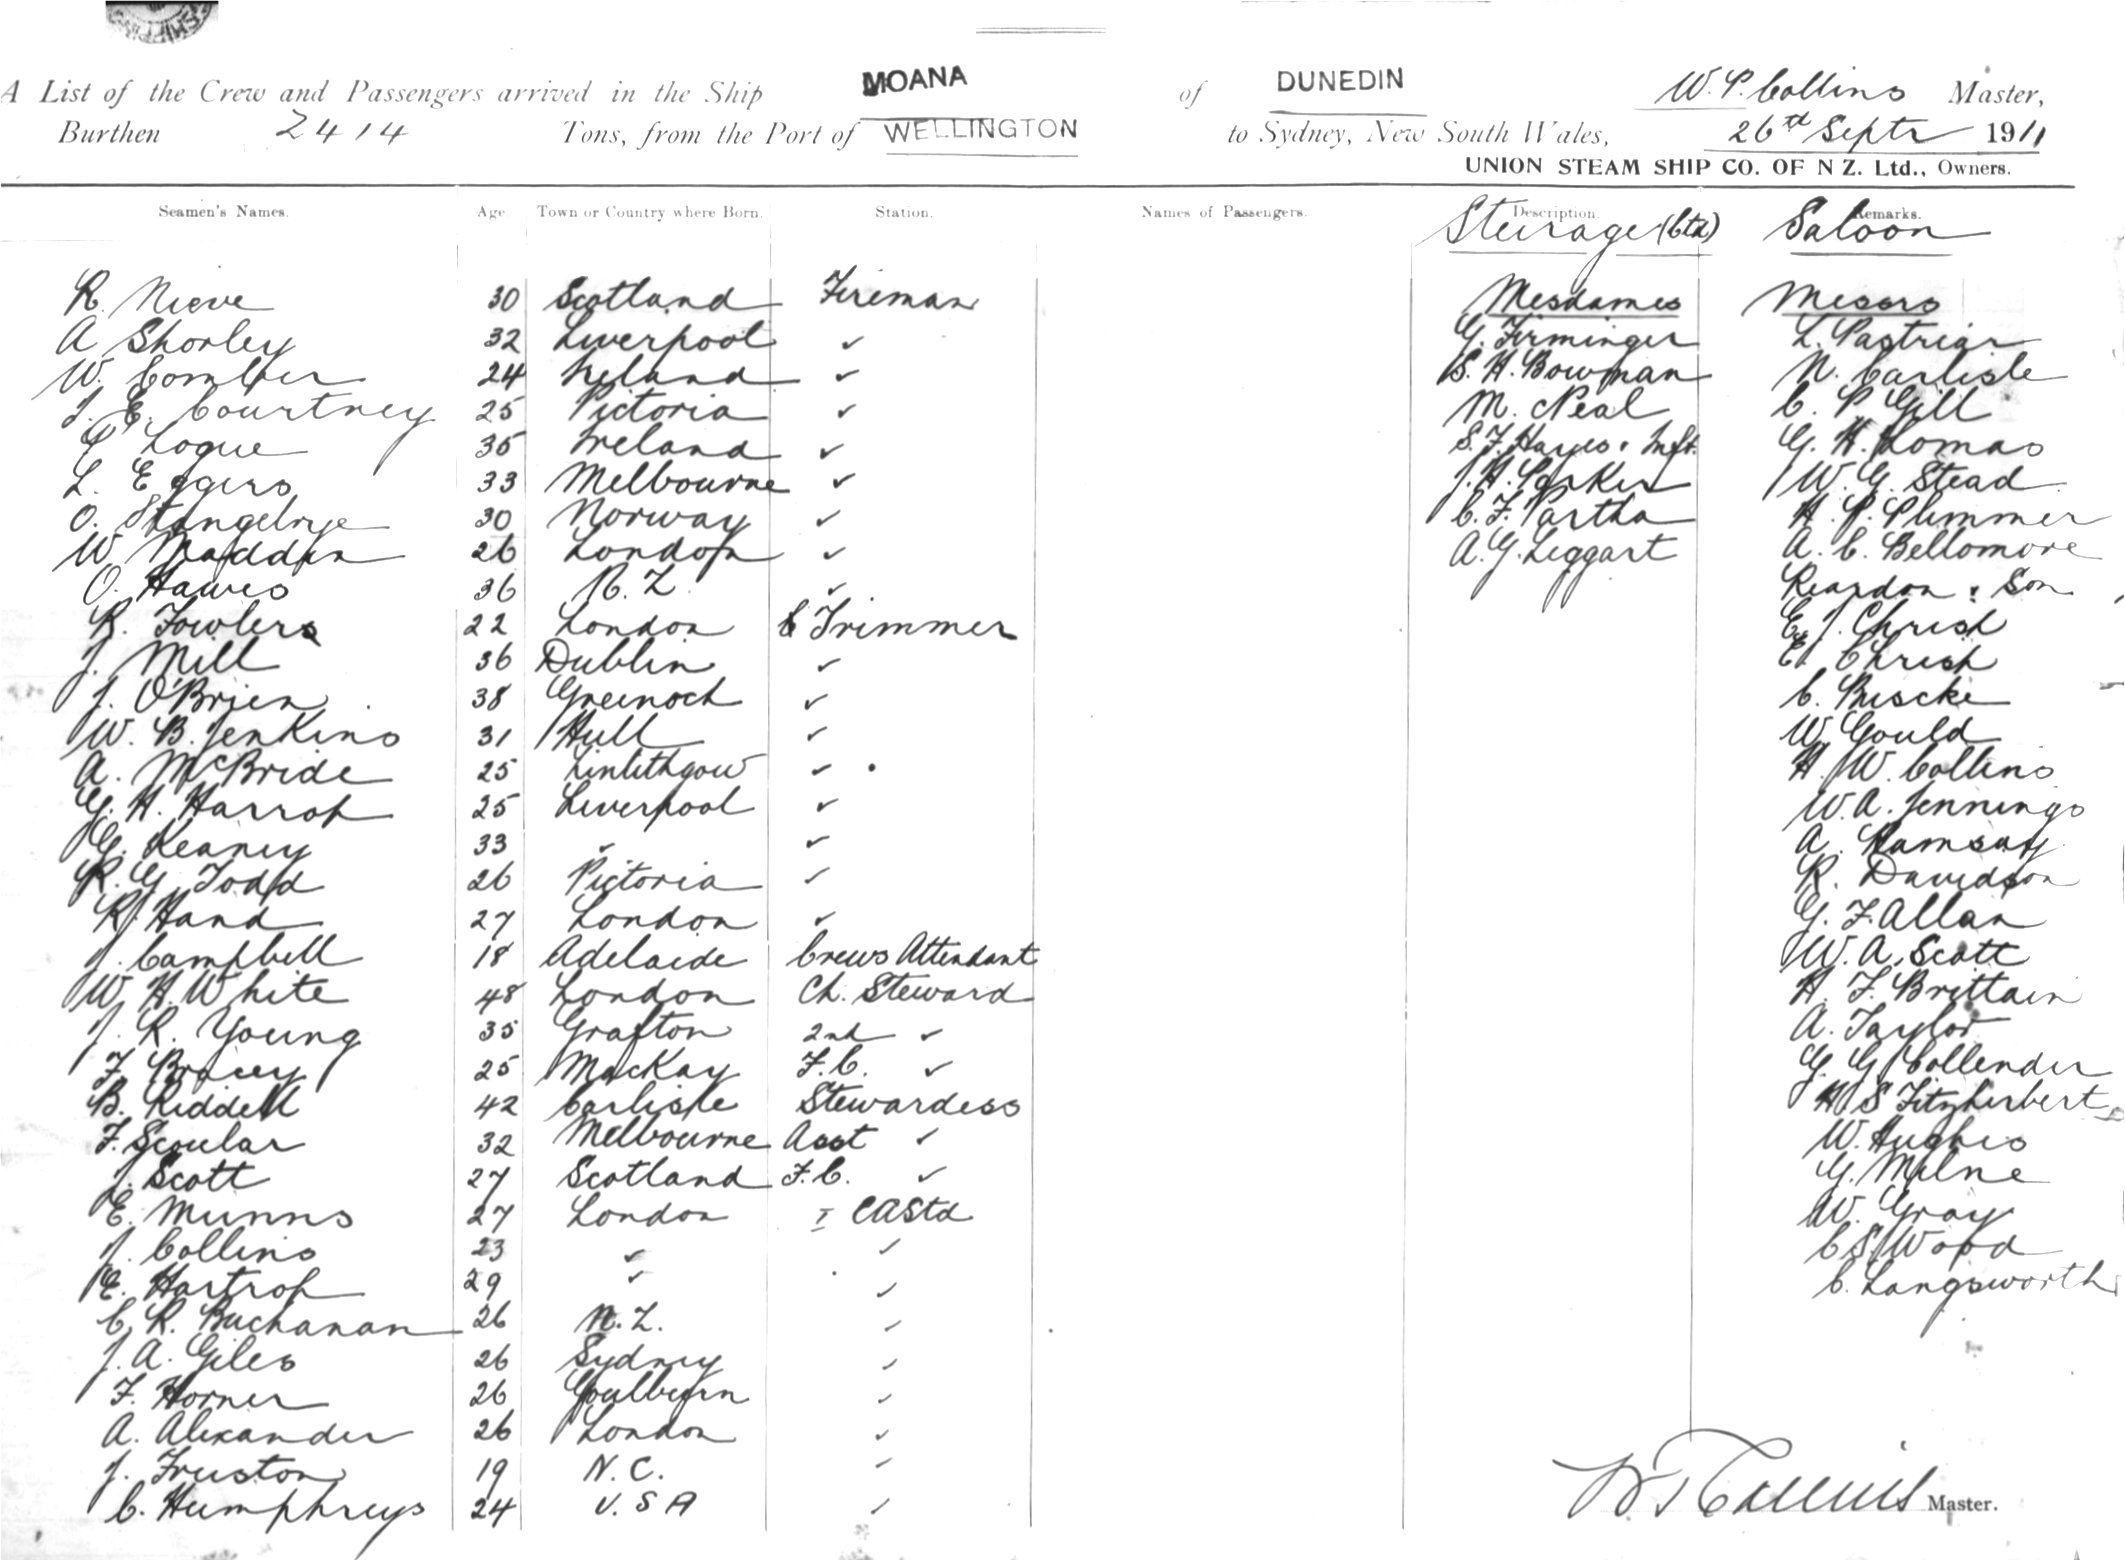 A List of the Crew and Passengers arrived in the Ship MOANA of DUNEDIN W. P. Collins Master,
Burthen 2414 Tons, from the Port of WELLINGTON to Sydney, New South Wales, 26th Septr 1911
UNION STEAM SHIP CO. OF N Z. Ltd., Owners.
Seamen's Names. Age Town or Country where Born. Station. Names of Passengers. Description. Remarks.
Steerage (Ctd) Saloon
R. Nieve 30 Scotland Fireman Mesdames Messrs
A Shorley 32 Liverpool ✓ G. Firminger L. Pastriar
W. Comber 24 Ireland ✓ S. H. Bowman N. Carlisle
J. E. Courtney 25 Victoria ✓ M. Neal C. P. Gill
Logue 35 Ireland ✓ S. F. Hayes & Inft. G. H. Lomas
L. Eggers 33 Melbourne ✓ J. H. Parker W. G. Stead
O. Stangelrye 30 Norway ✓ C. F. Partha H. P. Plimmer
W Madden 26 London ✓ A. G. Leggart A. C. Bellomore
O. Hawes 36 N. Z. ✓ Reardon & Son
R. Fowlers 22 London C Trimmer E. J. Chrish
J. Mill 36 Dublin ✓ E. Chrish
J. O'Brien 38 Greenock ✓ C. Buscke
W. B. Jenkins 31 Hull ✓ W. Gould
A. McBride 25 Linlithgow ✓ H. W. Collins
G. H. Harrop 25 Liverpool ✓ W. A. Jennings
G. Keaney 33 ✓ ✓ A. Ramsay
R. G Todd 26 Victoria ✓ R. Davidson
R. Hand 27 London ✓ G. F. Allan
J. Campbell 18 Adelaide Crews Attendant W. A. Scott
W H. White 48 London Ch. Steward H. F. Brittain
J. R. Young 35 Grafton 2nd ✓ A. Taylor
F. Bracey 25 MacKay F. C. ✓ G. G. Collender
B. Riddell 42 Carlisle Stewardess H S Fitzherbert
F. Scoular 32 Melbourne Asst ✓ W. Hughes
J. Scott 27 Scotland F. C. ✓ G. Milne
E. Munns 27 London I CAStd W. Gray
J. Collins 23 ✓ ✓ C S. Wood
E. Hartrop 29 ✓ ✓ C. Langsworth
C. R. Buchanan 26 N. Z. ✓
J. A. Giles 26 Sydney ✓
F. Horner 26 Goulburn ✓
A. Alexander 26 London ✓
J. Fruston 19 N. C. ✓
C. Humphreys 24 U. S A ✓
W P Collins Master.